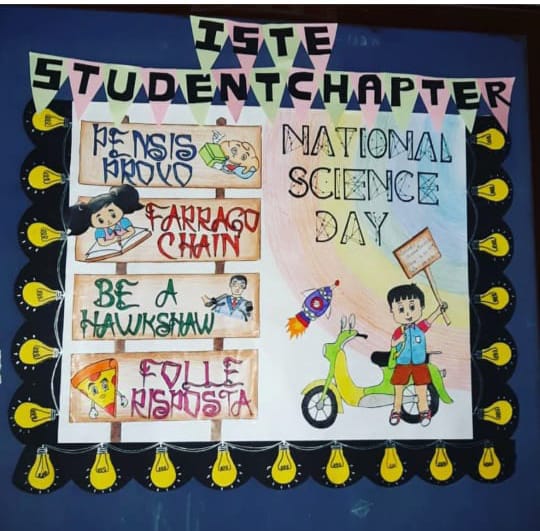 ISTE
STUDENT CHAPTER
PENSIS
PROVO
FARRAGO
CHAIN
BE A
HAWKSHAW
FOLLE
RISPOSTA
NATIONAL
SCIENCE
DAY